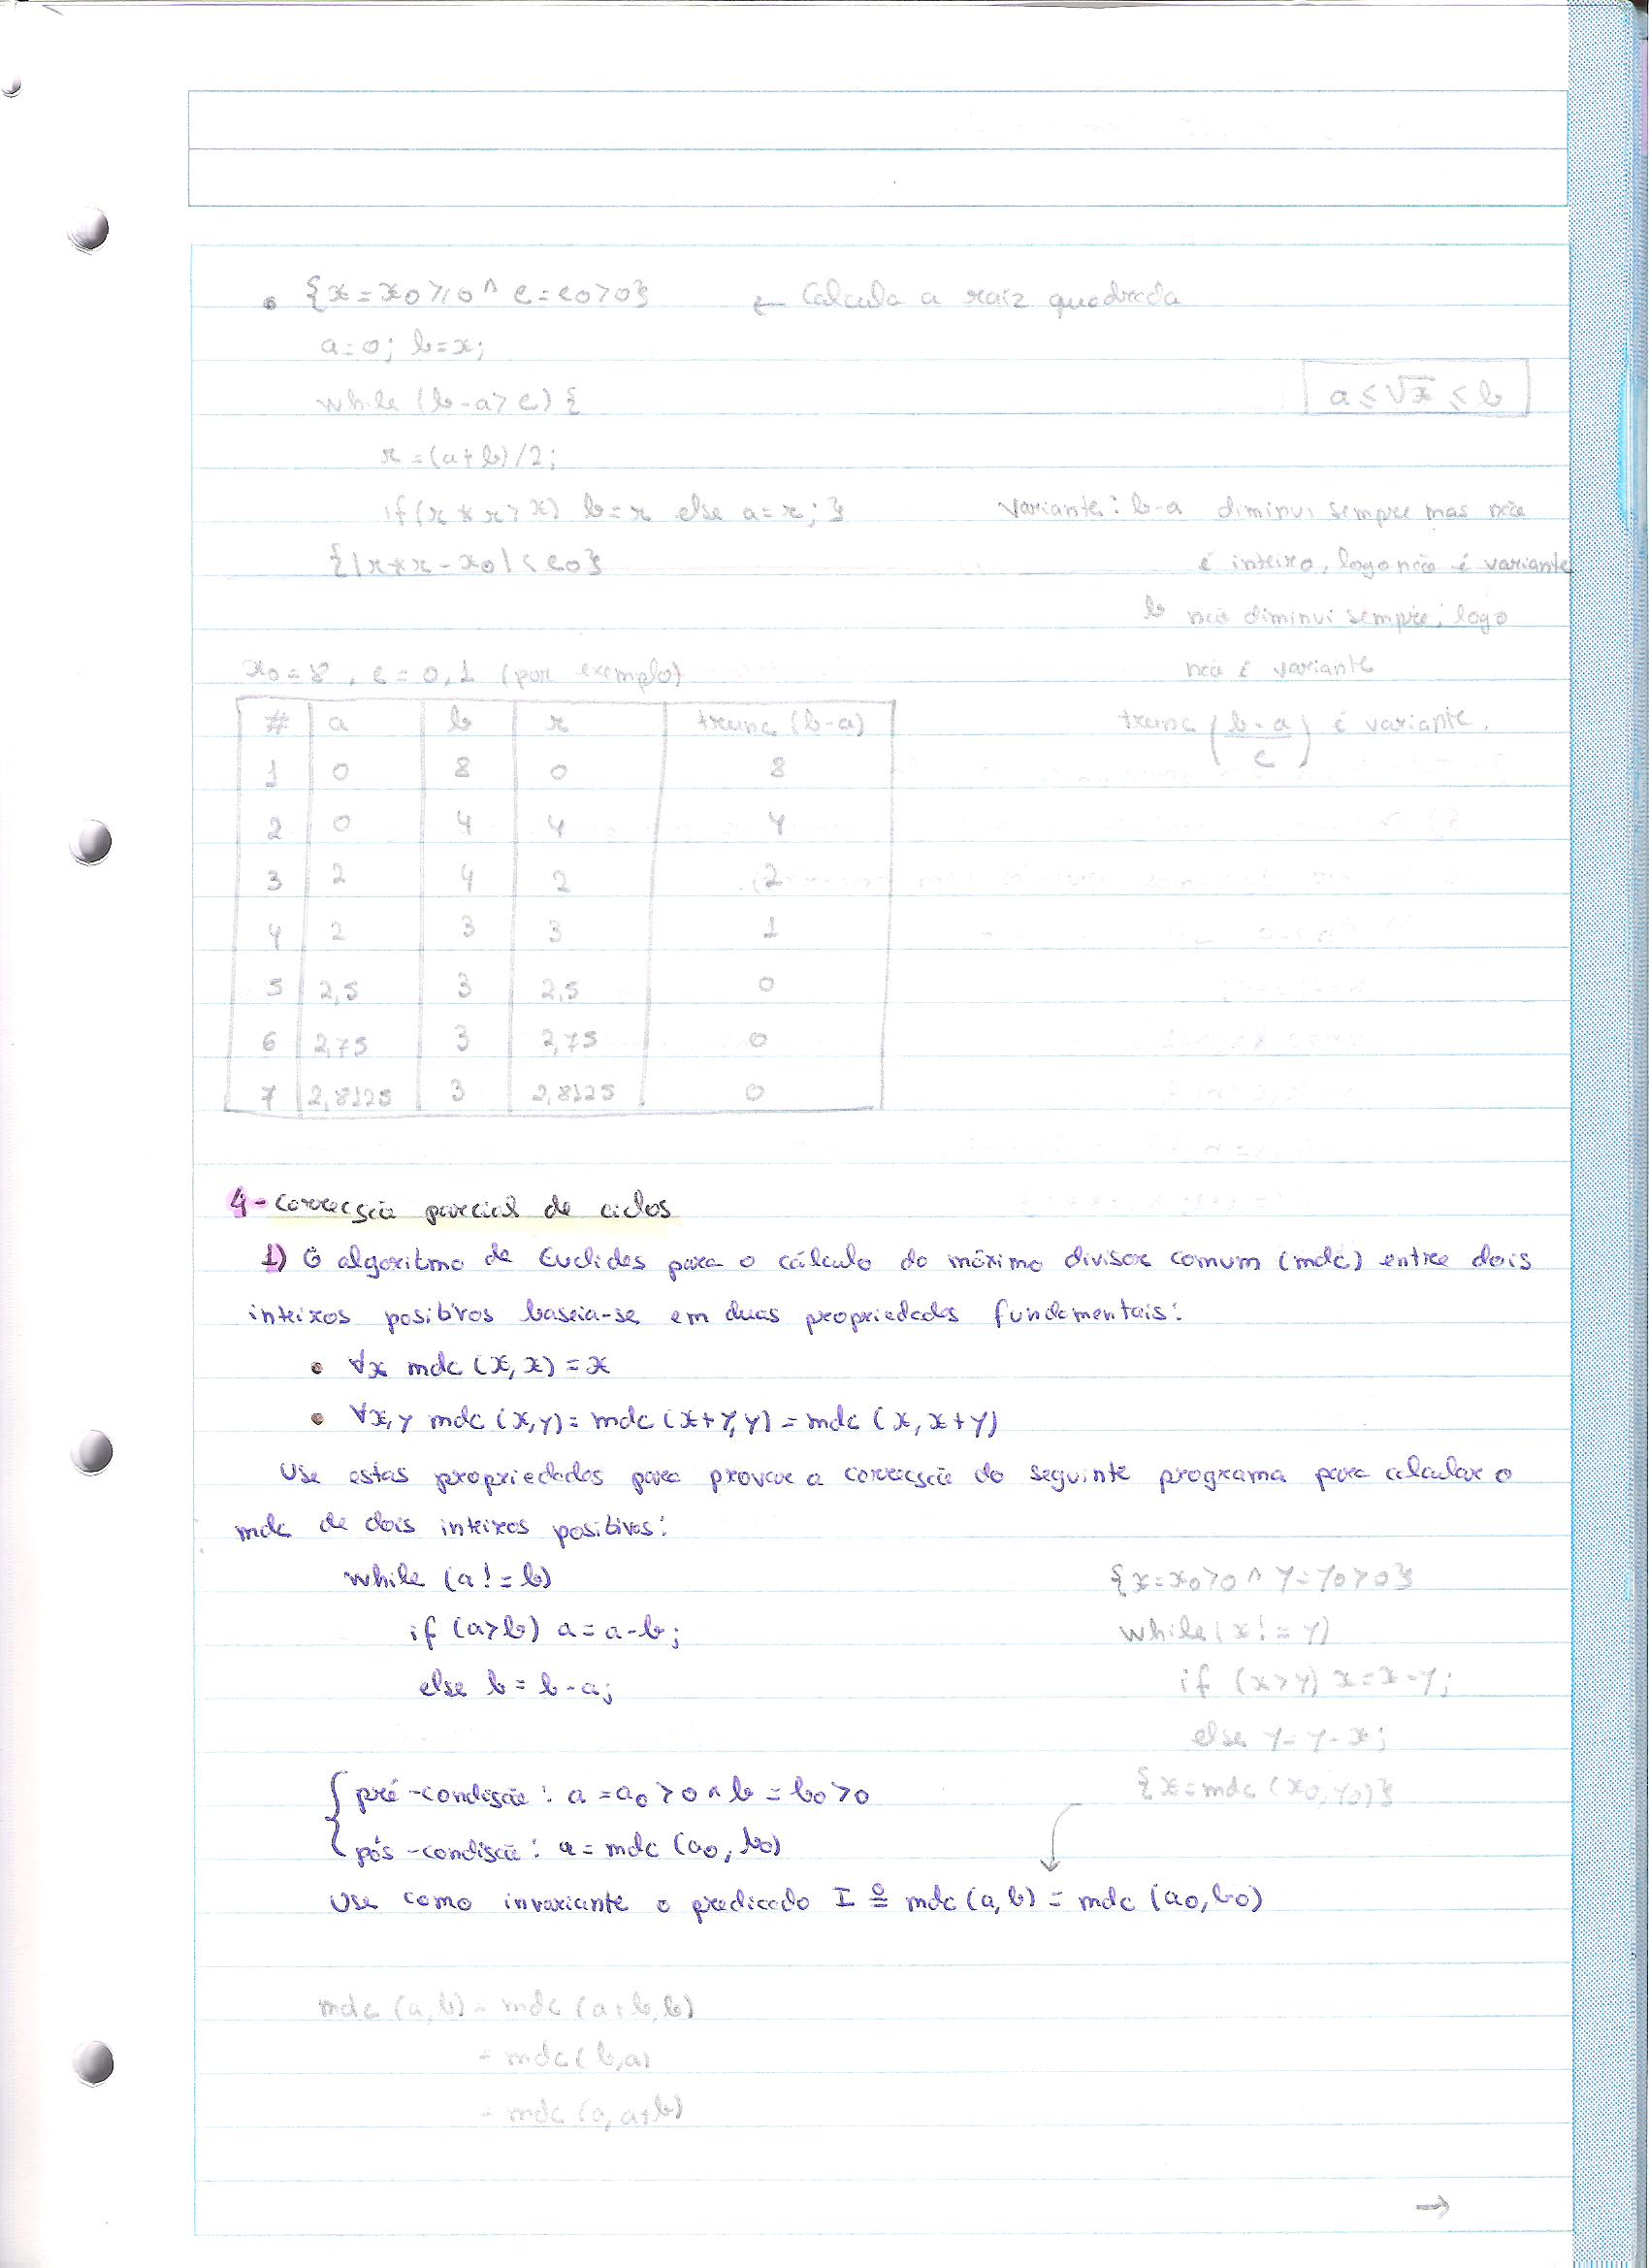 • {x = x0 ≥ 0 ^ e = e0 > 0} ← Calcula a raiz quadrada
a = 0; b = x;
while (b - a > e) {
a ≤ √x ≤ b
r = (a + b)/2;
if (r * r > x) b = r else a = r; }
{|r * r - x0| < e0}
Variante: b-a diminui sempre mas não
é inteiro, logo não é variante
b não diminui sempre, logo
não é variante
trunc ((b-a)/e) é variante.
x0 = 8, e = 0,1 (por exemplo)
# a b r trunc (b-a)
1 0 8 0 8
2 0 4 4 4
3 2 4 2 2
4 2 3 3 1
5 2,5 3 2,5 0
6 2,75 3 2,75 0
7 2,8125 3 2,8125 0
4 - Correcção parcial de ciclos
1) O algoritmo de Euclides para o cálculo do máximo divisor comum (mdc) entre dois
inteiros positivos baseia-se em duas propriedades fundamentais:
• ∀x mdc (x, x) = x
• ∀x,y mdc (x,y) = mdc (x+y,y) = mdc (x, x+y)
Use estas propriedades para provar a correcção do seguinte programa para calcular o
mdc de dois inteiros positivos:
while (a != b)
if (a > b) a = a - b;
else b = b - a;
{x = x0 > 0 ^ y = y0 > 0}
while (x != y)
if (x > y) x = x - y;
else y = y - x;
{x = mdc (x0, y0)}
pré-condição: a = a0 > 0 ^ b = b0 > 0
pós-condição: a = mdc (a0, b0)
Use como invariante o predicado I ≙ mdc (a, b) = mdc (a0, b0)
mdc (a, b) = mdc (a+b, b)
= mdc (b, a)
= mdc (a, a+b)
→